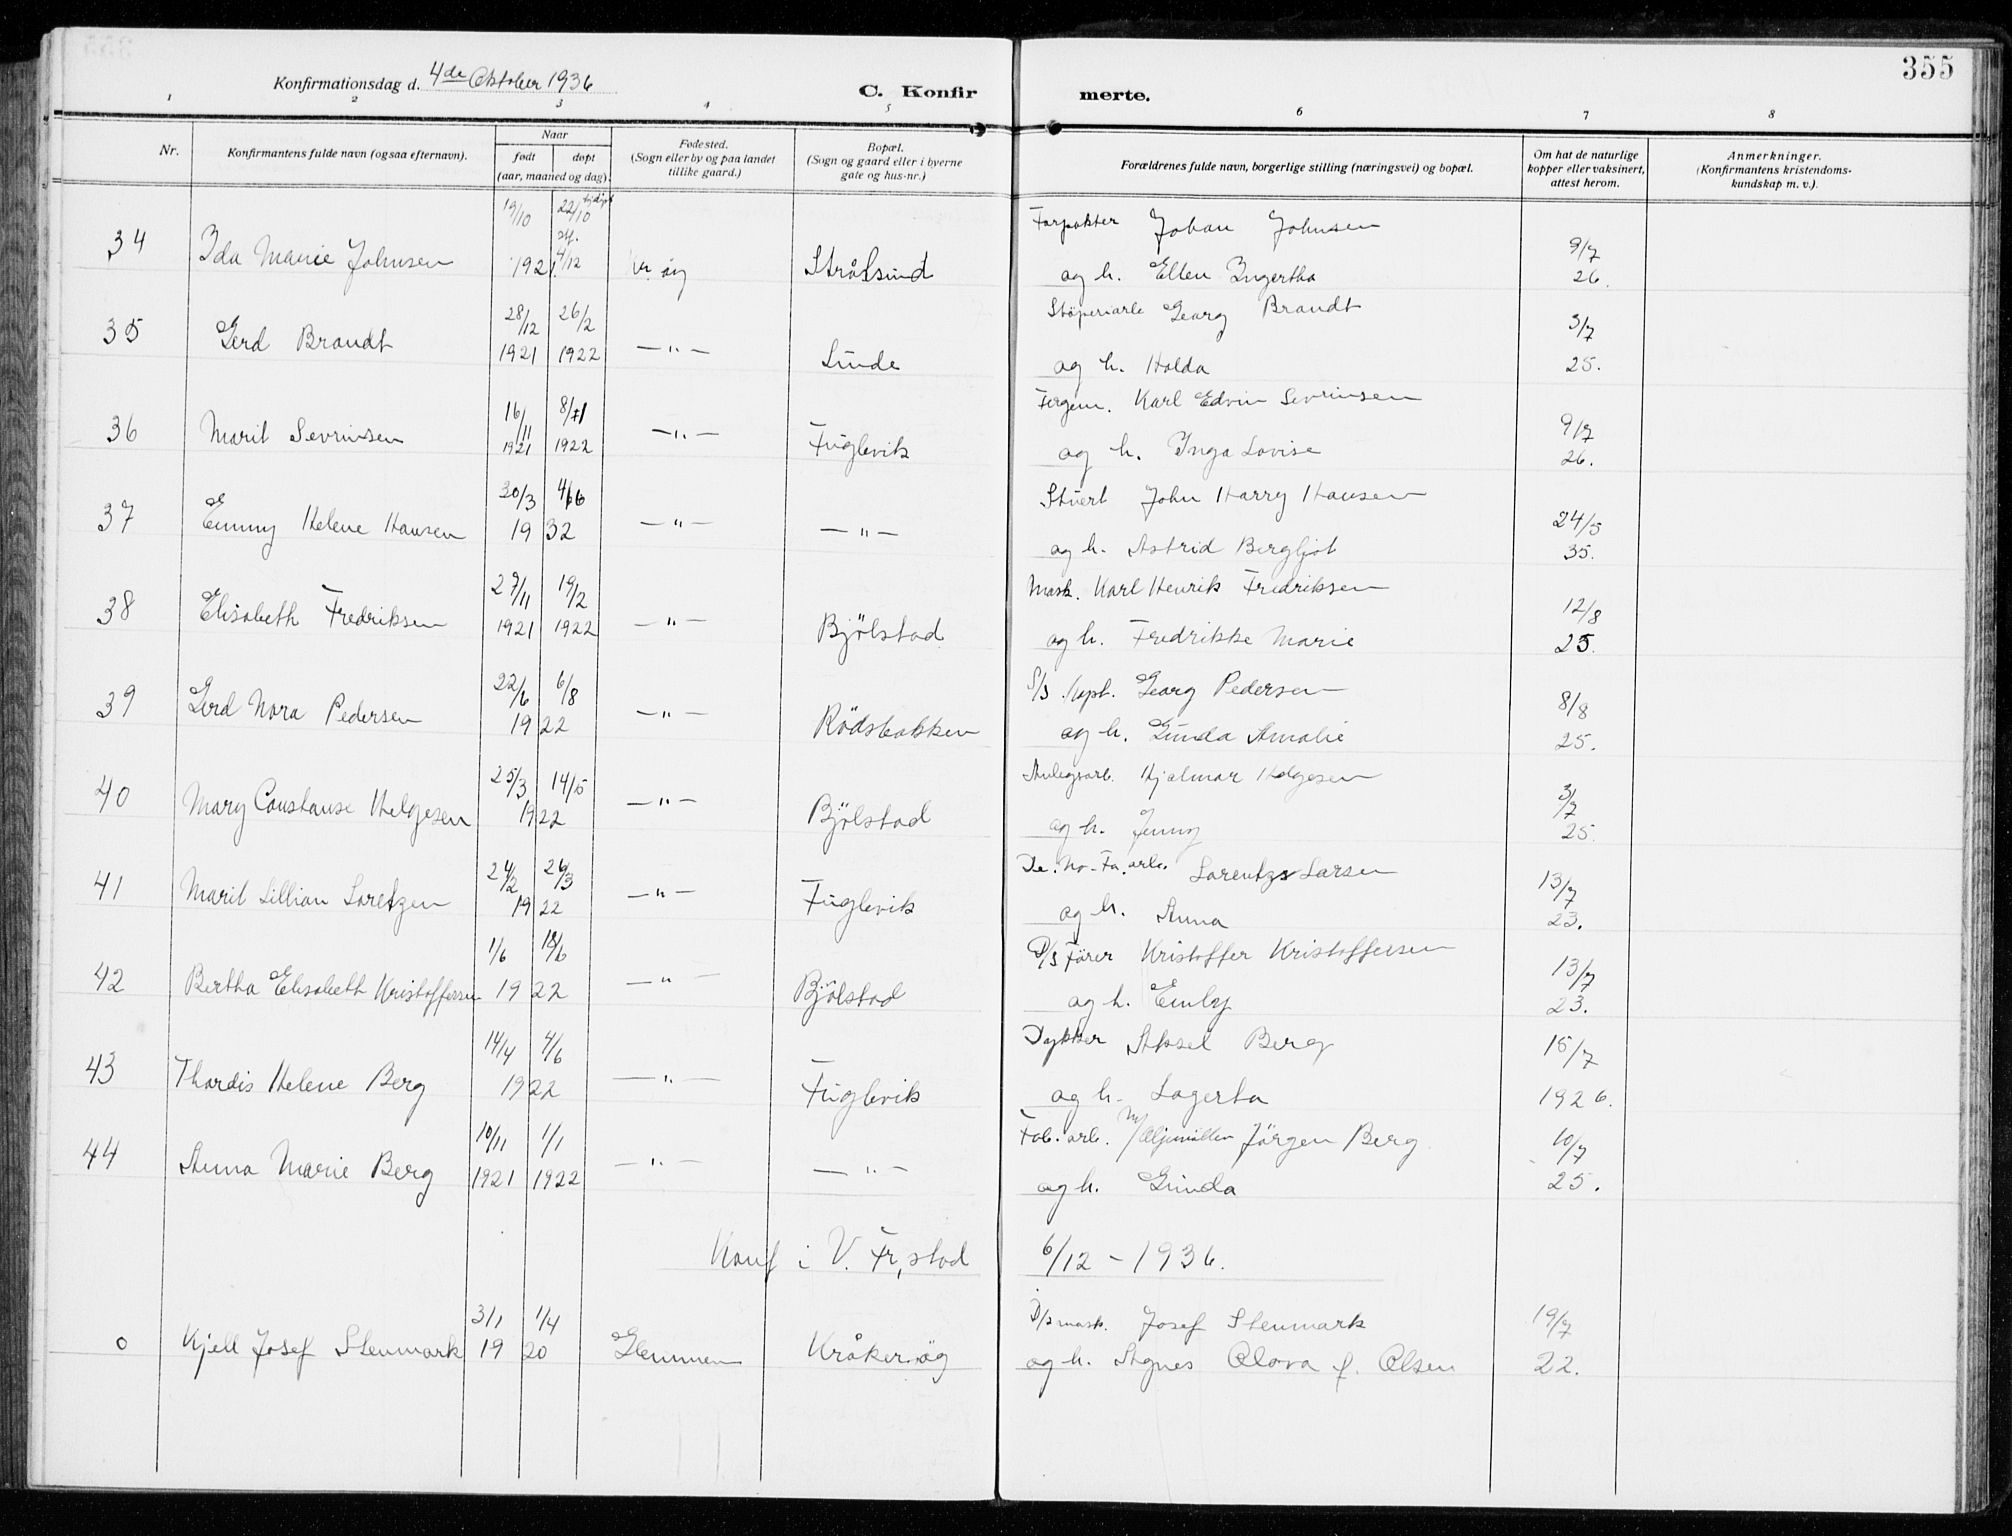 355
Konfirmationsdag d. 4de Oktober 1936
C. Konfirmerte.
1 2 3 4 5 6 7 8
Nr. Konfirmantens fulde navn (ogsaa efternavn). Naar født døpt (aar, maaned og dag). Fødested. (Sogn eller by og paa landet tillike gaard.) Bopæl. (Sogn og gaard eller i byerne gate og hus-nr.) Forældrenes fulde navn, borgerlige stilling (næringsvei) og bopæl. Om hat de naturlige kopper eller vaksinert, attest herom. Anmerkninger. (Konfirmantens kristendomskundskap m. v.).
19/10 22/10 Johan Johnsen 9/7
34 Ida Marie Johnsen 1921. 4/12 Kr. øy Strålsund og h. Ellen Ingertha 26.
28/12 26/2 Georg Brandt 3/7
35 Gerd Brandt 1921 1922 —"— Lunde og h. Halda 25.
16/11 Fergem. Karl Edvin Sevrinsen 9/7
36 Marit Sevrinsen 1921 1922 —"— Fuglevik og h. Inga Lovise 26.
30/3 Stuert John Harry Hansen 24/5
37 Emmy Helene Hansen 19 32 —"— —"— og h. Astrid Bergljot 35.
27/11 19/2 Mask. Karl Henrik Fredriksen 12/8
38 Elisabeth Fredriksen 1921 1922 —"— Bjölstad og h. Fredrikke Marie 25.
22/6 6/8 S/S Kapt. Georg Pedersen 8/8
39 Gerd Nora Pedersen 19 22 —"— Rödsbakken og h. Gunda Amalie 25.
25/3 14/5 Anlegsarb. Hjalmar Helgesen 3/7
40 Mary Constanse Helgesen 1922 —"— Bjölstad og h. Jenny 25.
24/2 26/3 De. No-Fa. arb. Lorentzs Larsen 13/7
41 Marit Lillian Loretzen 19 22 —"— Fuglevik og h. Anna 23.
1/6 18/6 D/S Förer Kristoffer Kristoffersen 13/7
42 Bertha Elisabeth Kristoffersen 19 22 —" Bjölstad og h. Emly 23.
14/4 4/6 Dykker Aksel Berg 15/7
43 Thordis Helene Berg 1922 —"— Fuglevik og h. Lagerta 1926.
10/11 1/1 Fab. arb. v/Oljemöllen Jörgen Berg 10/7
44 Anna Marie Berg 1921 1922 —"— —"— og h. Gunda 25.
Konf i V. Fr,stad 6/12 - 1936.
3/1 1/4 D/S mask. Josef Stenmark 19/7
0 Kjell Josef Stenmark 19 20 Glemmen Kråkeröy og h. Agnes Olava f. Olsen 22.